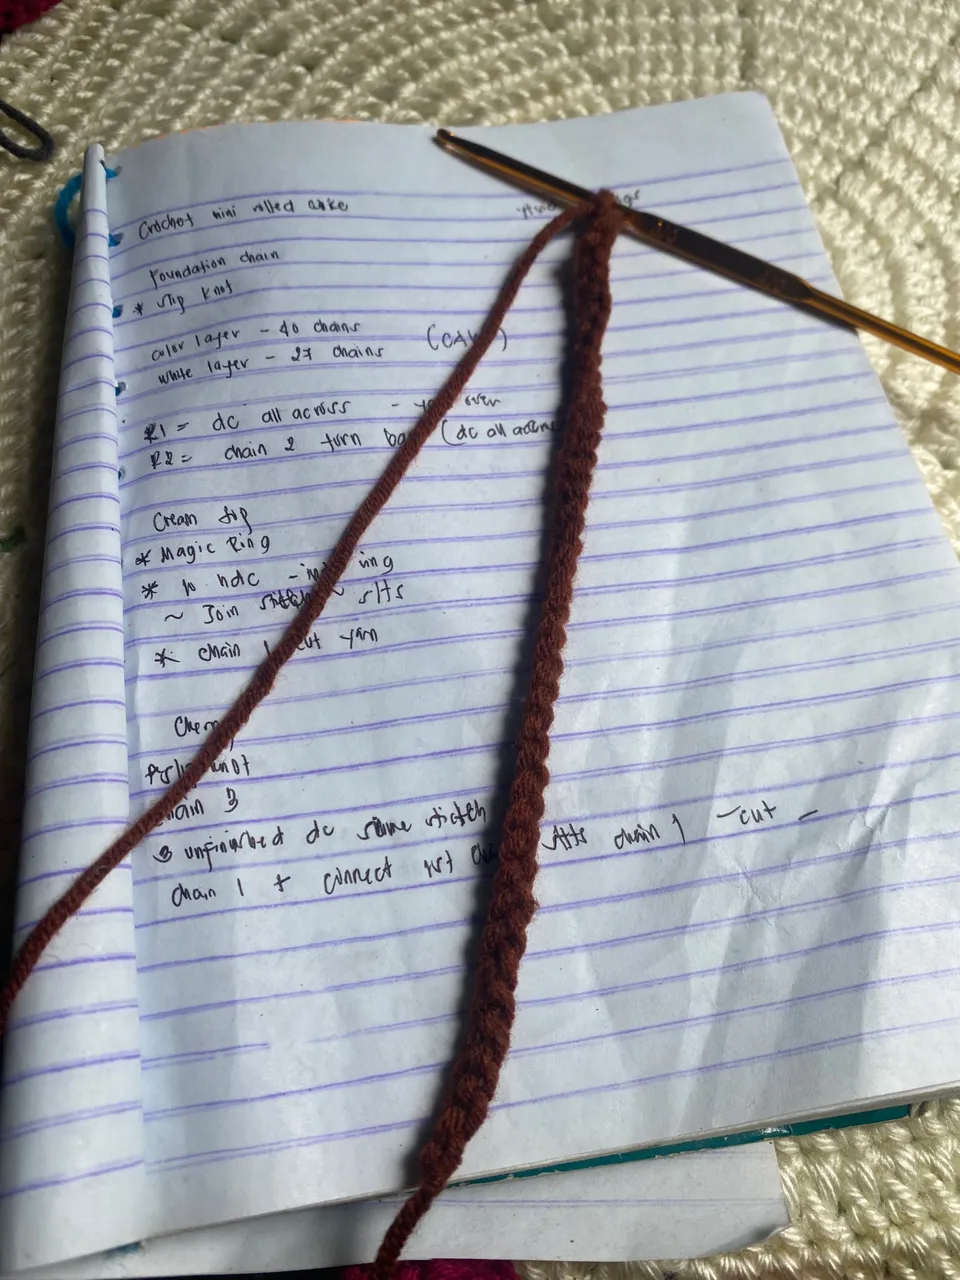 Crochet mini rolled cake
Foundation chain
* Slip knot
color layer - 40 chains
white layer - 27 chains
R1 = dc all across - over
R2 = chain 2 turn (dc all
Cream
* Magic Ring
* 10 hdc -
~ Join ~ slts
* chain 1 cut yarn
Cherry
chain 3
3 unfinished dc same stitch chain 1 - cut -
chain 1 + connect